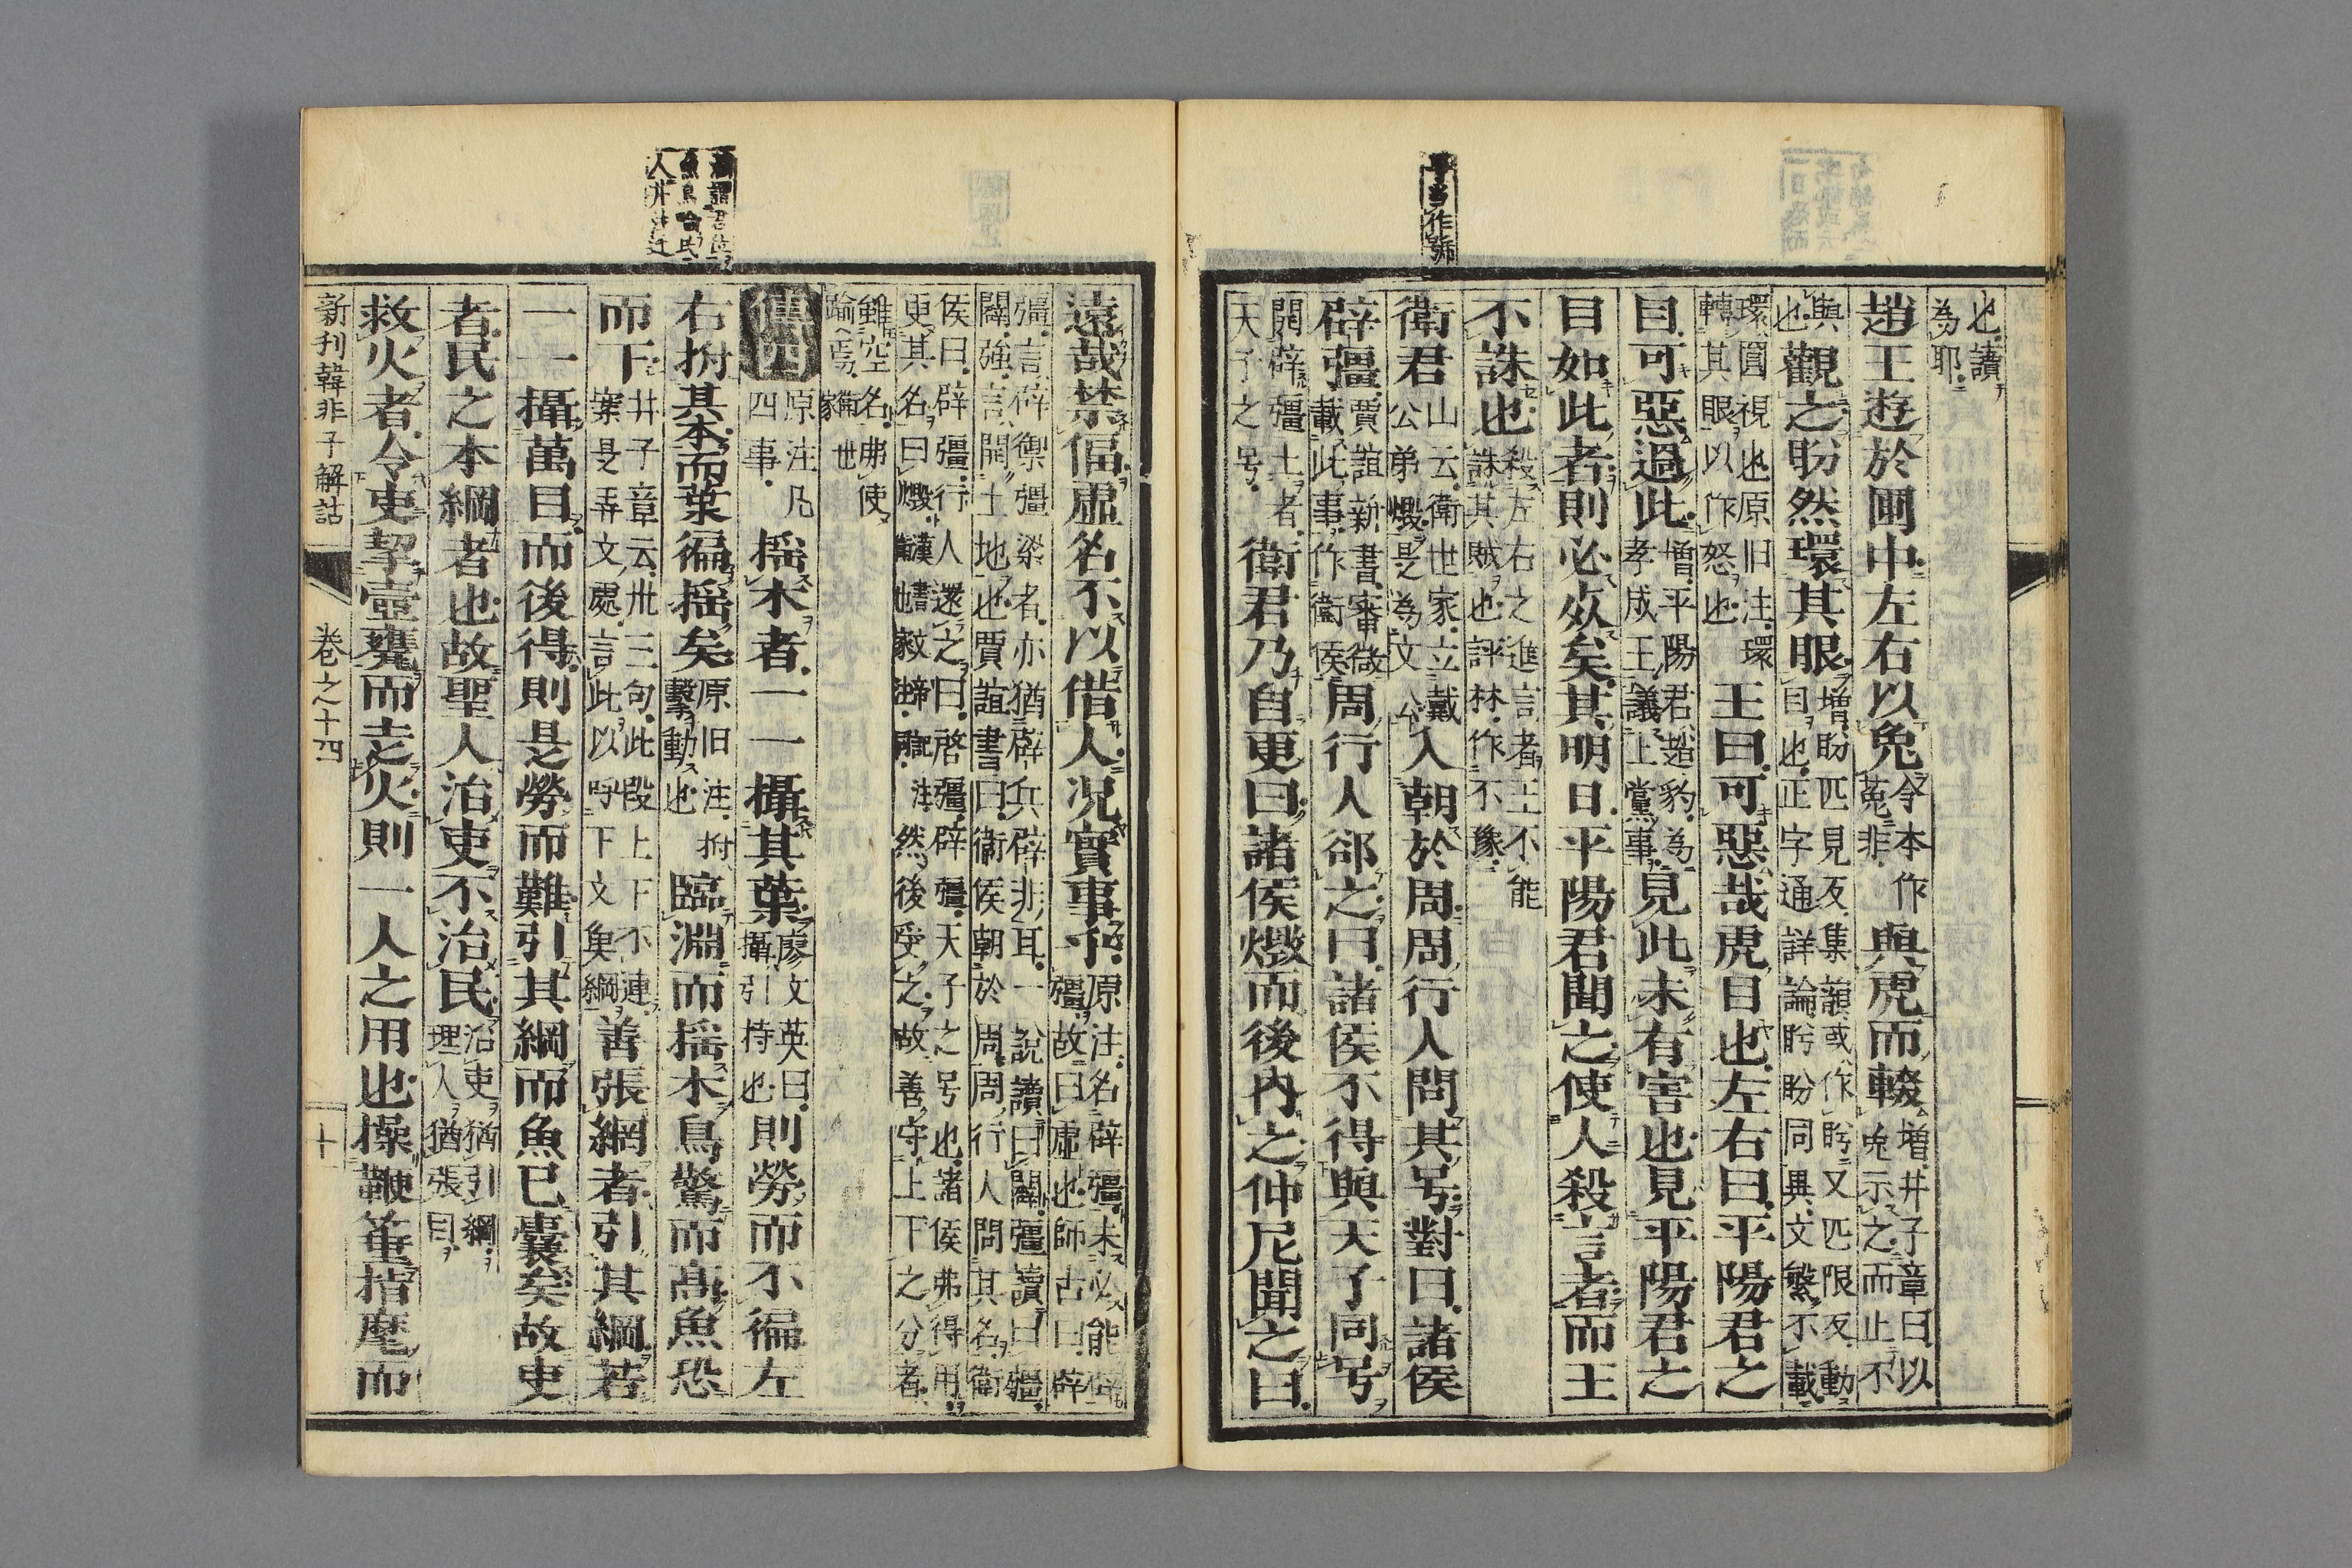 也讀為耶
趙王遊於圃中左右以兔今本作菟非與虎而輟増井子章曰以兔示之而止不
與也觀之盼然環其眼増盼匹見反集韻或作盻又匹限反動目也正字通詳論盻盼同異文繁不載
環圓視也原旧注環轉其眼以作怒也王曰可惡哉虎目也左右曰平陽君之
目可惡過此増平陽君趙豹為孝成王議上黨事見此未有害也見平陽君之
目如此者則必死矣其明日平陽君聞之使人殺言者而王
不誅也殺左右之進言者王不能誅其賊也評林作不豫
衛君山云衛世家立戴公弟燬是為文公入朝於周周行人問其号對曰諸侯
辟彊賈誼新書審微載此事作衛侯周行人郤之曰諸侯不得與天子同号
開辟彊土者天子之号衛君乃自更曰諸侯燬而後內之仲尼聞之曰
遠哉禁偪虛名不以借人况實事乎原注名辟彊未必能辟彊故曰虛也師古曰辟
彊言辟禦彊梁者亦猶辟兵辟非耳一説讀曰闢彊讀曰疆闢強言開土地也賈誼書曰衞侯朝於周周行人問其名衛
侯曰辟彊行人還之曰啓彊辟彊天子之号也諸侯弗得用更其名曰燬然後受之故善守上下之分者
雖空名弗使踰焉衛世家
傳四原注凡四事揺木者一一攝其葉廖文英曰攝引持也則勞而不徧左
右拊其本而葉徧揺矣原旧注拊擊動也臨淵而揺木鳥驚而高魚恐
而下井子章云卅三句此段上下不連葉是弄文處言此以呼下文魚綱善張網者引其綱若
一一攝萬目而後得則是勞而難引其綱而魚已囊矣故吏
者民之本綱者也故聖人治吏不治民治吏猶引綱理人猶張目
救火者令吏挈壺甕而走火則一人之用也操鞭箠指麾而
新刊韓非子解詁 卷之十四 十